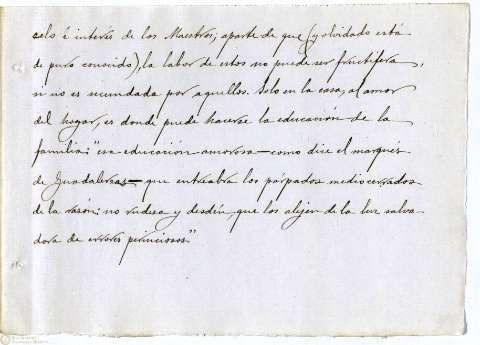 celo é interés de los Maestros; aparte de que (y olvidado está
de puro conocido), la labor de estos no puede ser fructífera,
si no es secundada por aquellos. Solo en la casa, al amor
del hogar, es donde puede hacerse la educación de la
familia: "esa educación amorosa—como dice el marqués
de Guadalerzas—que entreabra los párpados mediocerrados
de la razón: no rudeza y desdén que los alejen de la luz salva-
dora de errores perniciosos."